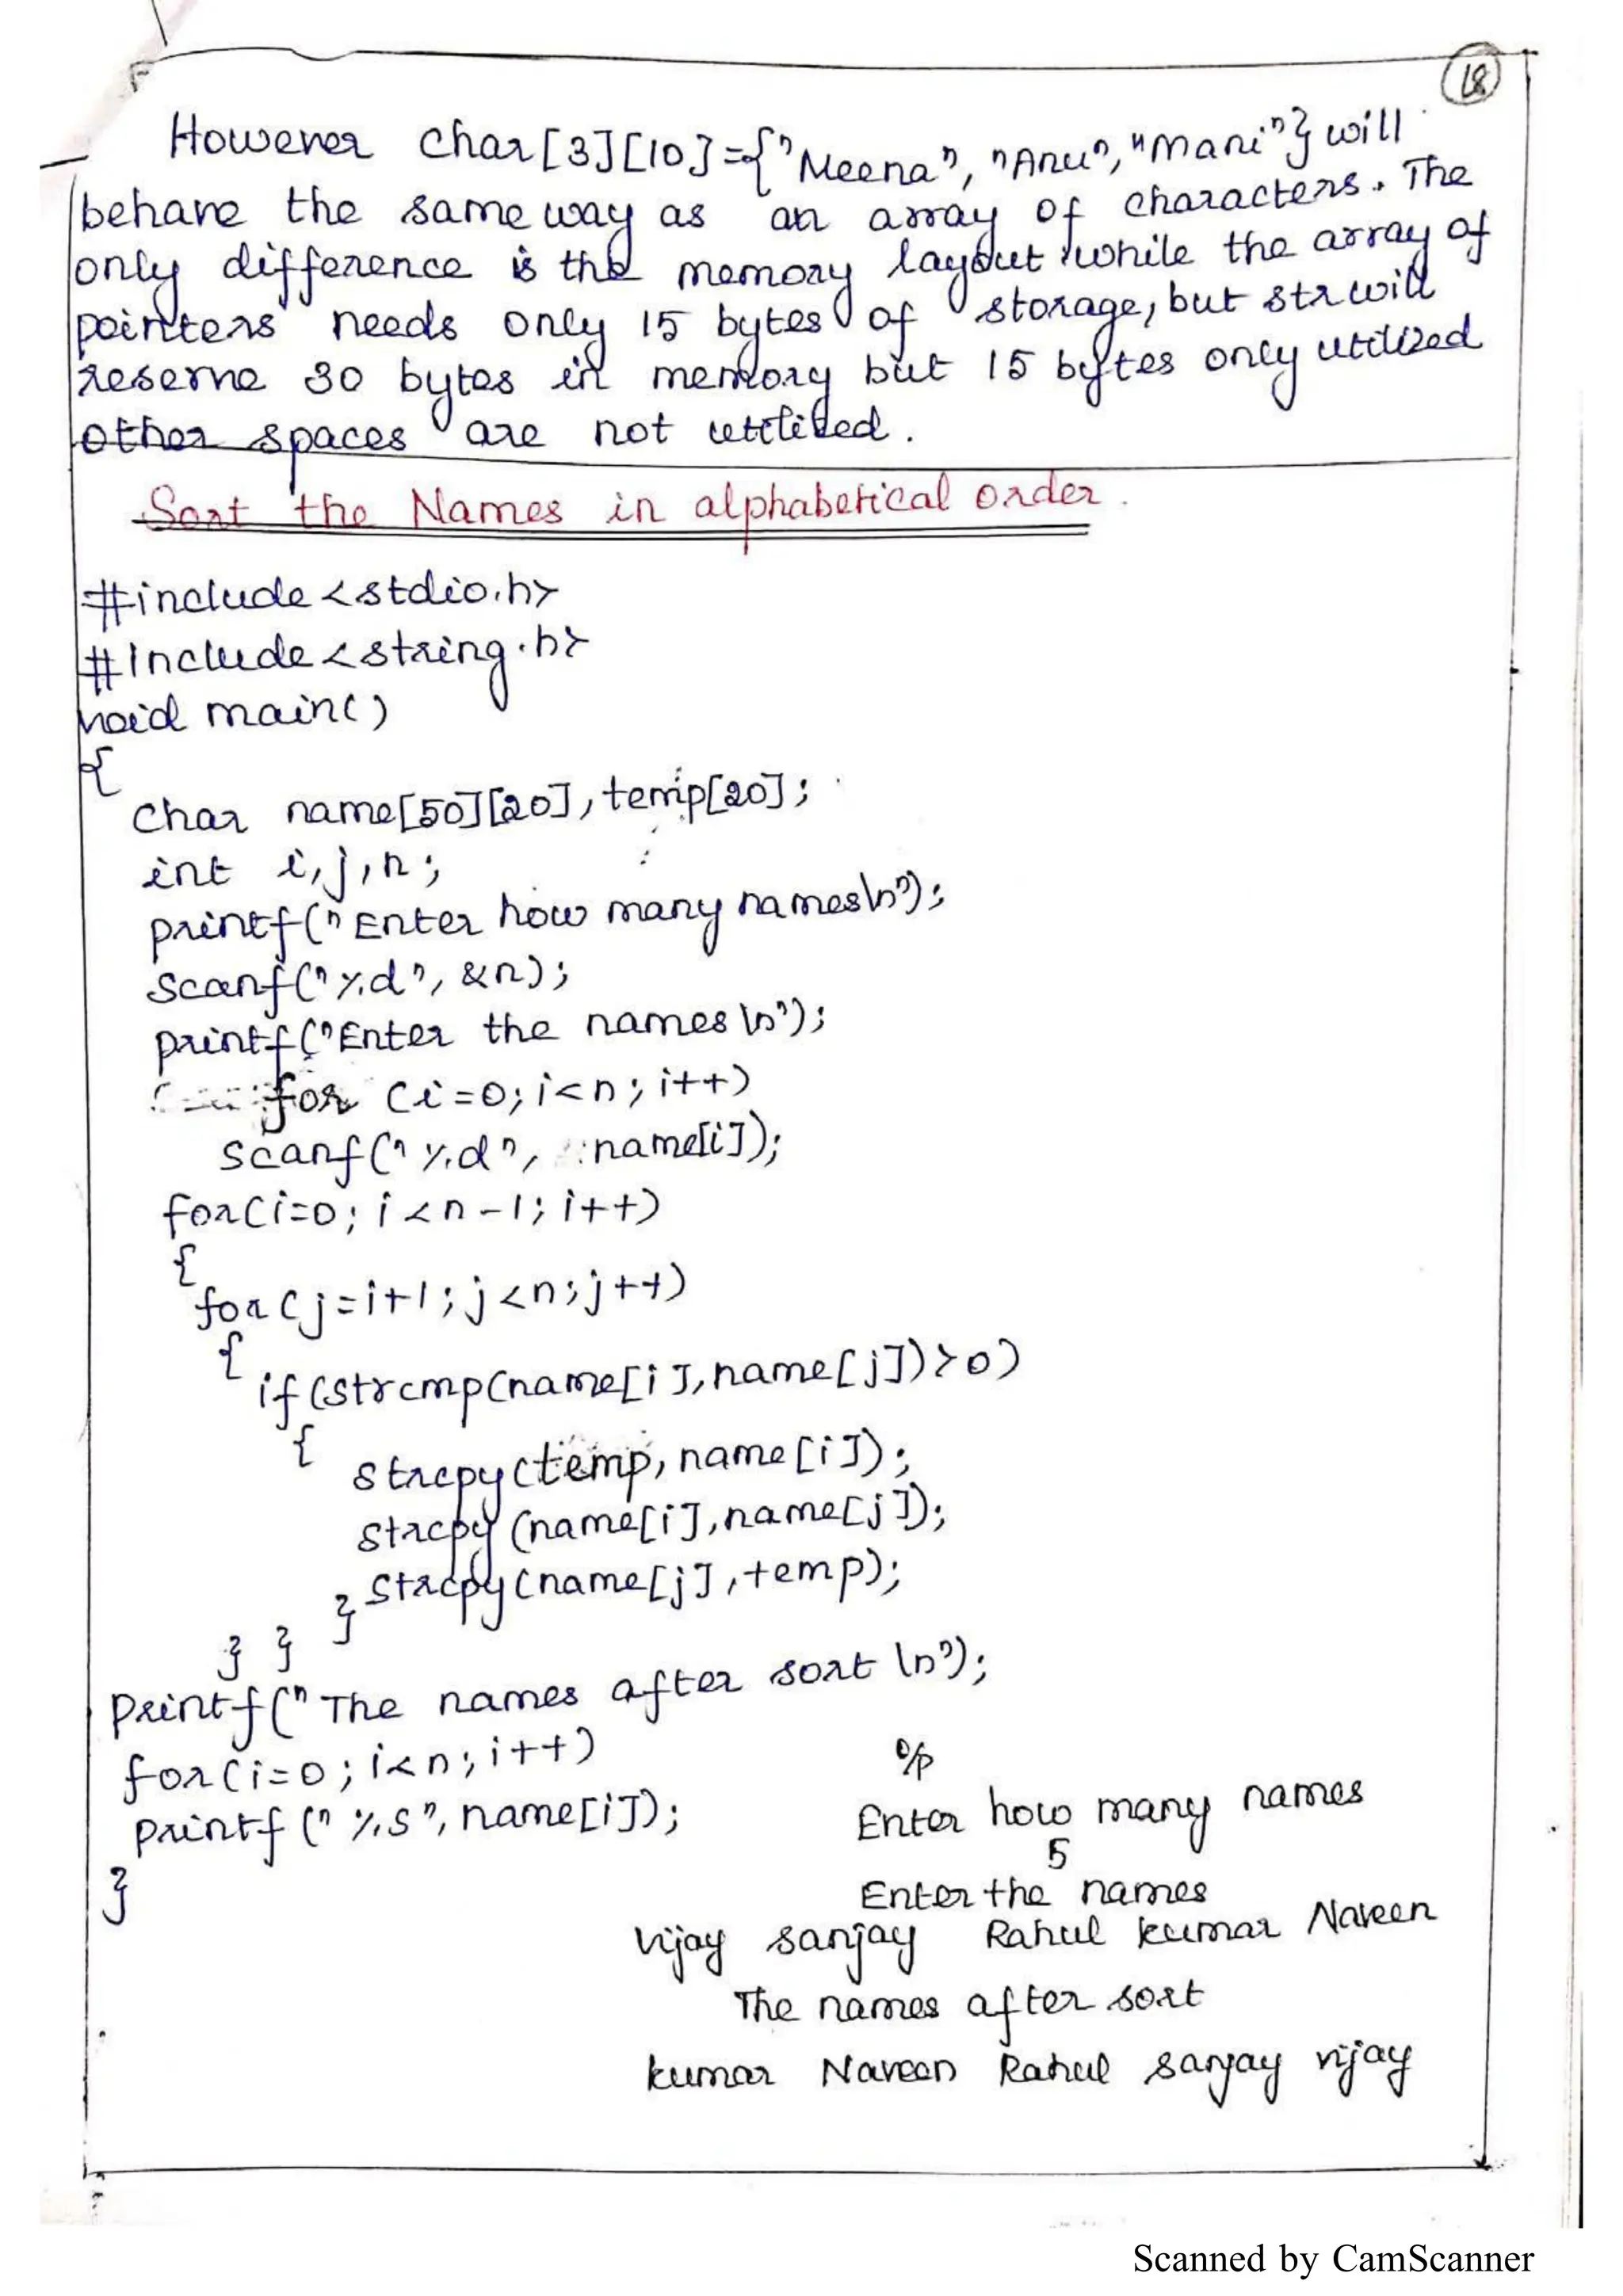 18
However char[3][10]={"Meena", "Anu", "Mani"} will
behave the same way as an array of characters. The
only difference is the memory layout while the array of
pointers needs only 15 bytes of storage, but str will
reserve 30 bytes in memory but 15 bytes only utilized
other spaces are not utilized.
Sort the Names in alphabetical order.
#include<stdio.h>
#Include<string.h>
void main()
{
char name[50][20], temp[20];
int i,j,n;
printf("Enter how many names\n");
scanf("%d", &n);
printf("Enter the names\n");
for (i=0; i<n; i++)
scanf("%d", name[i]);
for(i=0; i<n-1; i++)
{
for(j=i+1; j<n; j++)
{
if(strcmp(name[i], name[j])>0)
{
strcpy(temp, name[i]);
strcpy(name[i], name[j]);
strcpy(name[j], temp);
}
} }
printf("The names after sort \n");
for(i=0; i<n; i++)
printf("%s", name[i]);
}
o/p
Enter how many names
5
Enter the names
vijay sanjay Rahul kumar Naveen
The names after sort
kumar Naveen Rahul sanjay vijay
Scanned by CamScanner